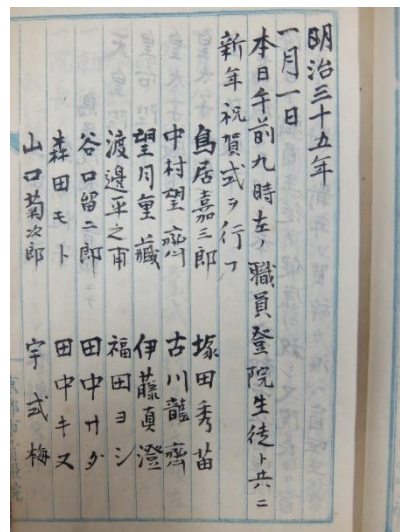 明治三十五年
一月一日
本日午前九時左ノ職員登院生徒ト共ニ
新年祝賀式ヲ行フ
鳥居嘉三郎 塚田秀苗
中村望齊 古川龍齊
望月重藏 伊藤真澄
渡邊平之甫 福田ヨシ
谷口留二郎 田中サダ
森田モト 田中キヌ
山口菊次郎 宇式梅